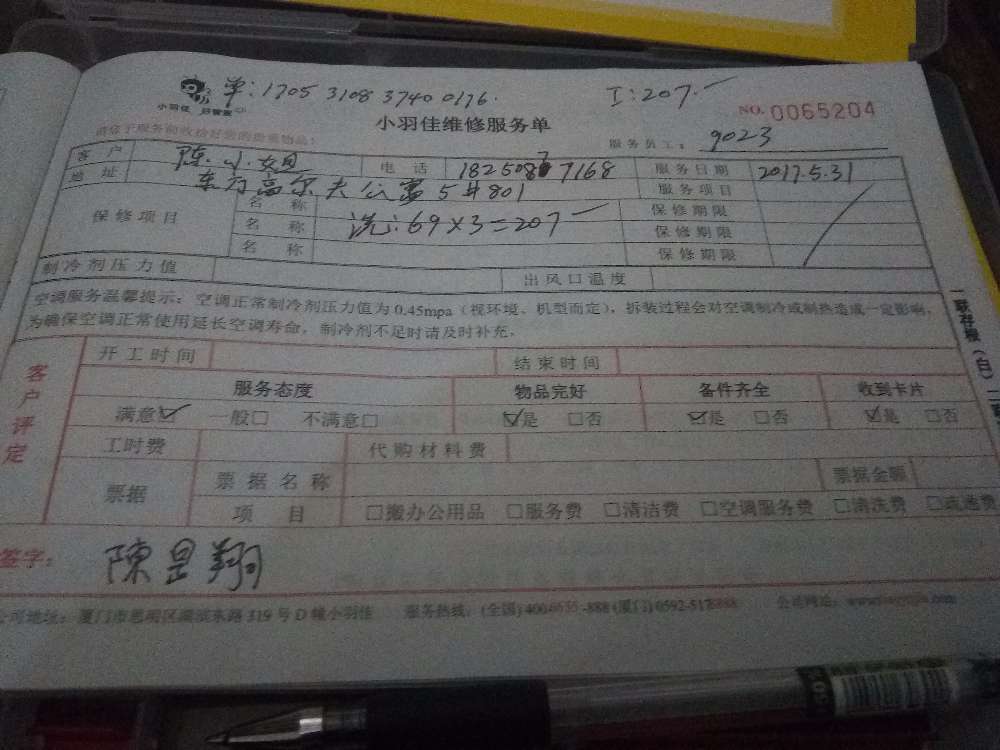 单:1705 3108 3740 0176. I:207.-
小羽佳 好管家
NO. 0065204
小羽佳维修服务单
服务员工: 9023
客户 陈小姐 电话 服务日期 2017.5.31
地址 东方高尔夫公寓5#801 服务项目
保修项目 名称 保修期限
名称 洗:69×3=207- 保修期限
名称 保修期限
制冷剂压力值 出风口温度
空调服务温馨提示:空调正常制冷剂压力值为0.45mpa(视环境、机型而定),拆装过程会对空调制冷或制热造成一定影响,
为确保空调正常使用延长空调寿命,制冷剂不足时请及时补充。
一联存根(白)
客户评定
开工时间 结束时间
服务态度 物品完好 备件齐全 收到卡片
满意☑ 一般□ 不满意□ ☑是 □否 ☑是 □否 ☑是 □否
工时费 代购材料费
票据 票据名称 票据金额
项目 □搬办公用品 □服务费 □清洁费 □空调服务费 □清洗费 □疏通费
签字: 陳昱翔
公司地址:厦门市思明区湖滨东路319号D幢小羽佳 服务热线:(全国)400 -888(厦门)0592- 公司网址: